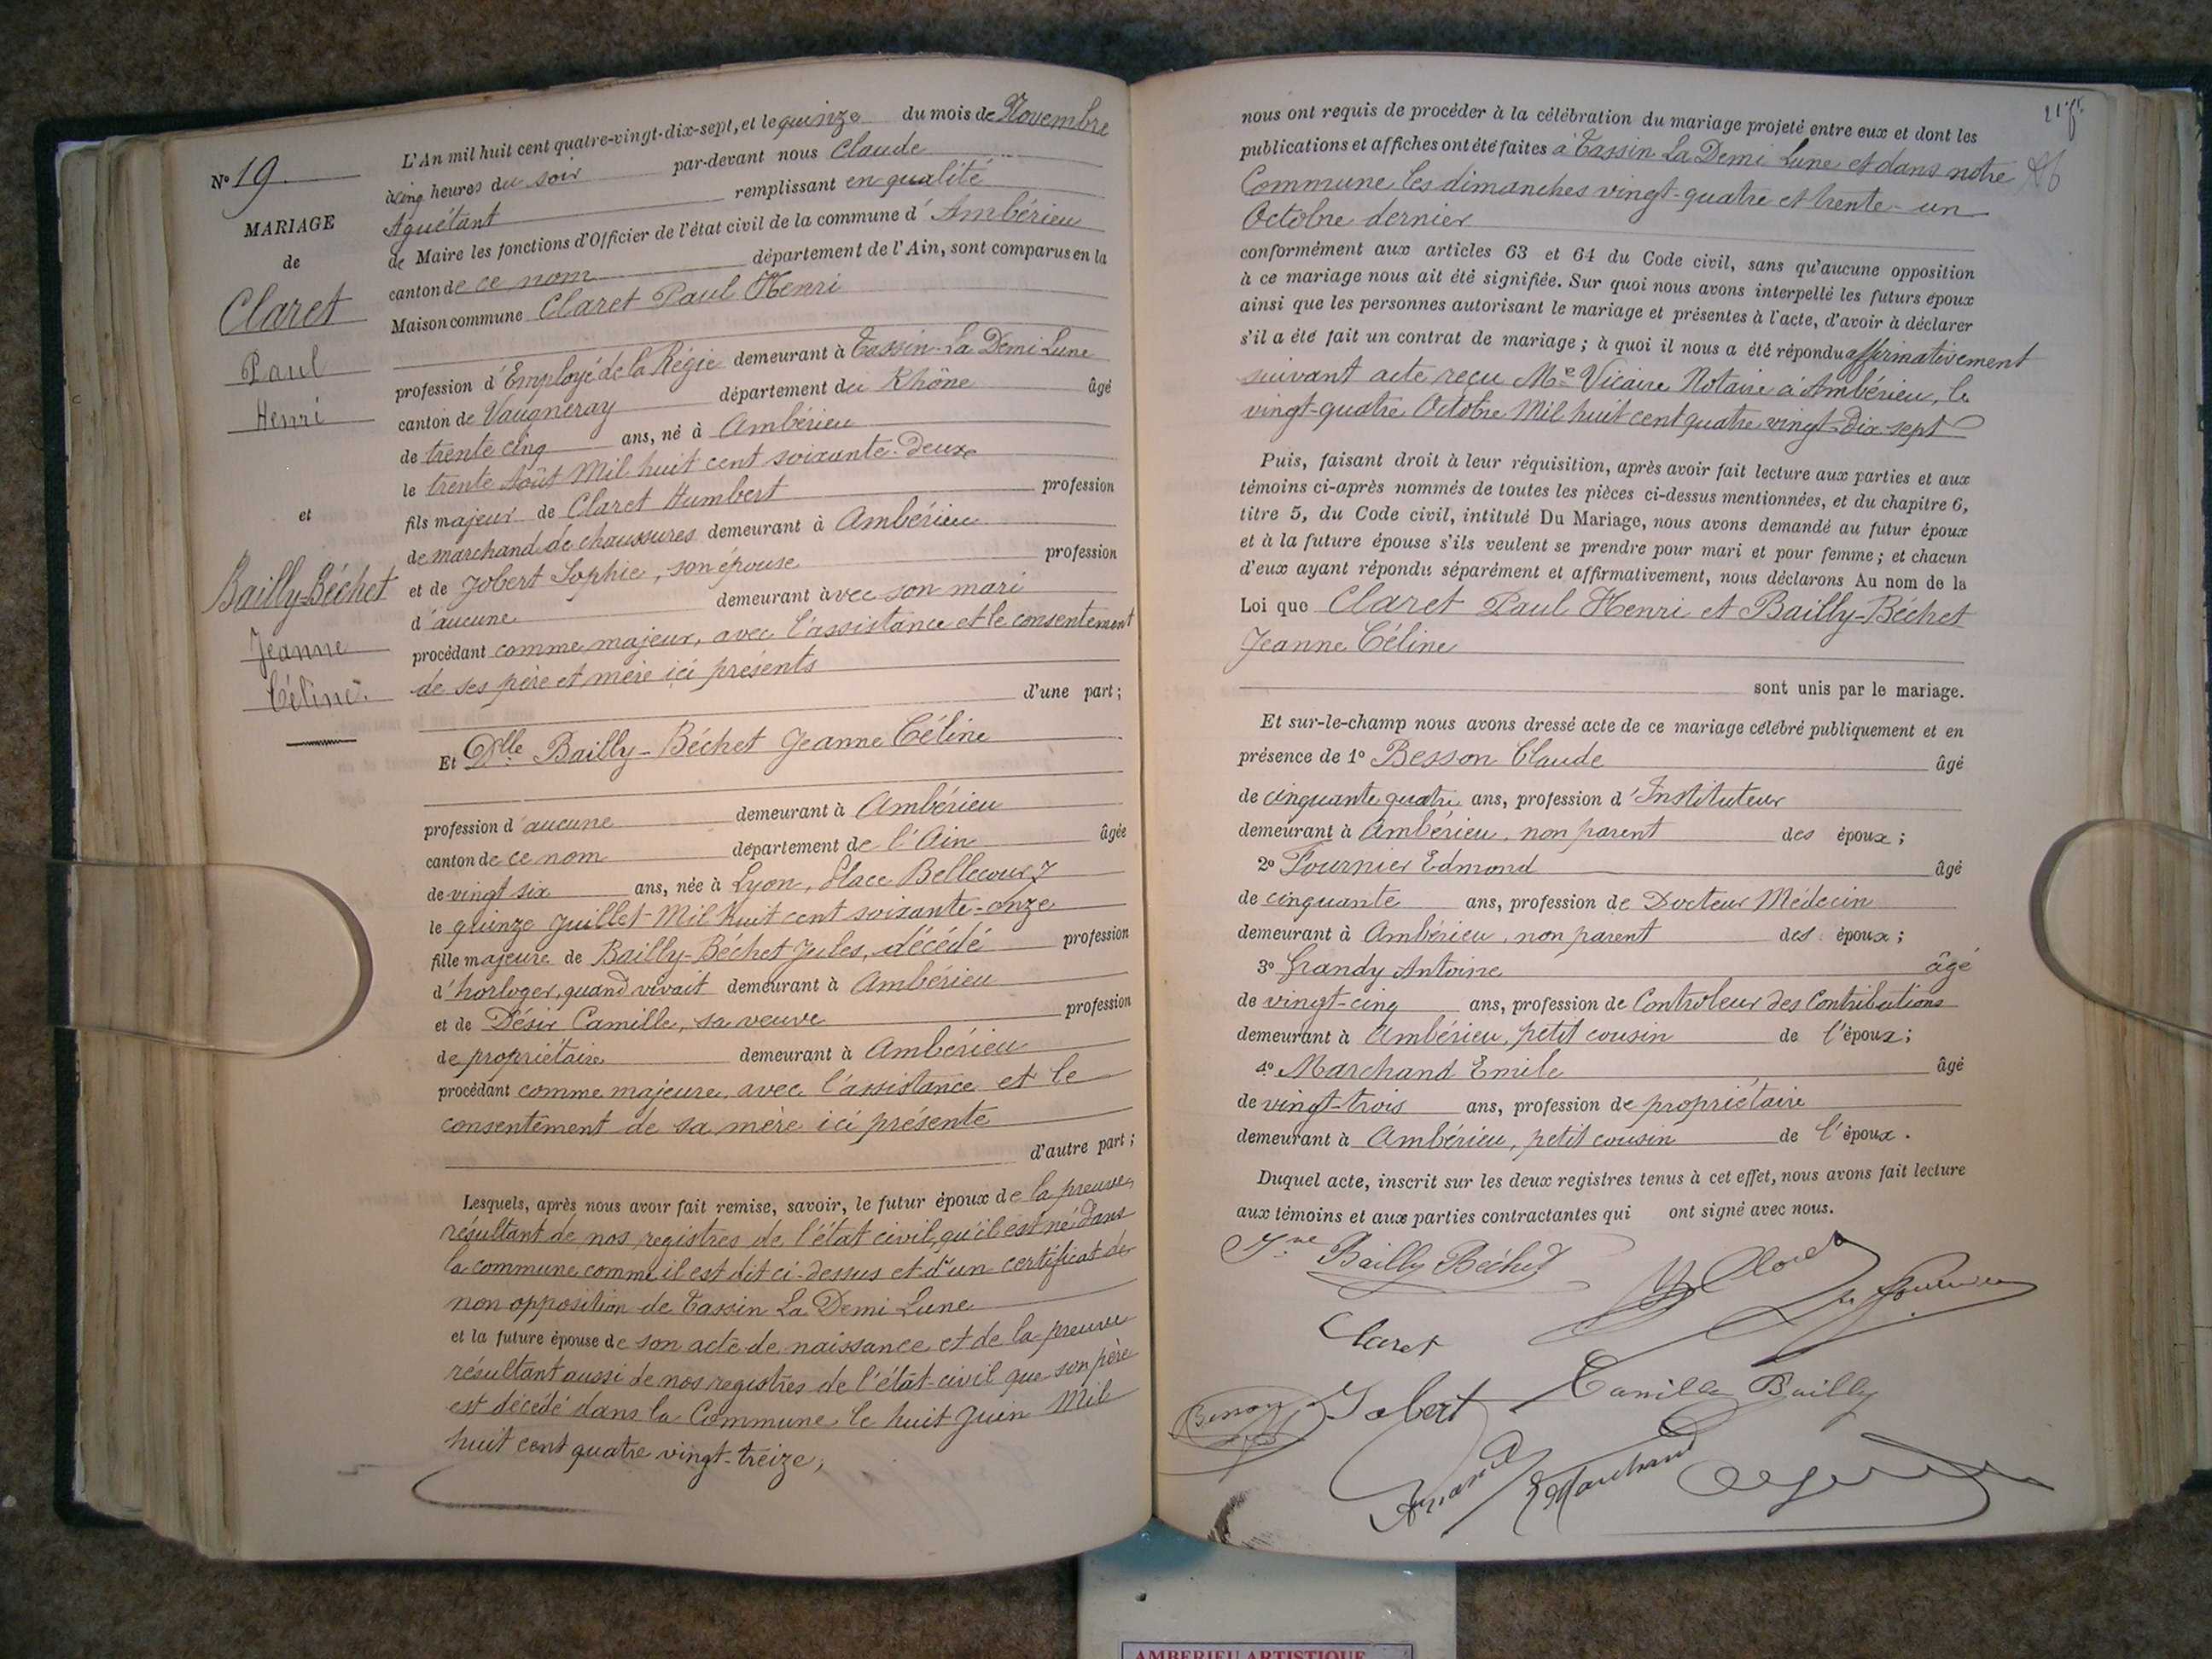 N° 19
MARIAGE
de
Claret
Paul
Henri
et
Bailly-Béchet
Jeanne
Céline
L'An mil huit cent quatre-vingt-dix-sept, et le quinze du mois de Novembre
à cinq heures du soir par-devant nous Claude
Aguétant remplissant en qualité
de Maire les fonctions d'Officier de l'état civil de la commune d'Ambérieu
canton de ce nom département de l'Ain, sont comparus en la
Maison commune Claret Paul Henri
profession d'Employé de la Régie demeurant à Tassin-La Demi Lune
canton de Vaugneray département du Rhône âgé
de trente cinq ans, né à Ambérieu
le trente Août Mil huit cent soixante-deux
fils majeur de Claret Humbert profession
de marchand de chaussures demeurant à Ambérieu
et de Jobert Sophie, son épouse profession
d'aucune demeurant avec son mari
procédant comme majeur, avec l'assistance et le consentement
de ses père et mère ici présents
d'une part;
Et Dlle Bailly-Béchet Jeanne Céline
profession d'aucune demeurant à Ambérieu
canton de ce nom département de l'Ain âgée
de vingt six ans, née à Lyon, Place Bellecour 7
le quinze Juillet Mil huit cent soixante-onze
fille majeure de Bailly-Béchet Jules, décédé profession
d'horloger, quand vivait demeurant à Ambérieu
et de Désir Camille, sa veuve profession
de propriétaire demeurant à Ambérieu
procédant comme majeure, avec l'assistance et le
consentement de sa mère ici présente
d'autre part;
Lesquels, après nous avoir fait remise, savoir, le futur époux de la preuve
résultant de nos registres de l'état civil, qu'il est né dans
la commune comme il est dit ci-dessus et d'un certificat de
non opposition de Tassin La Demi Lune
et la future épouse de son acte de naissance et de la preuve
résultant aussi de nos registres de l'état-civil que son père
est décédé dans la Commune le huit Juin Mil
huit cent quatre vingt-treize;
nous ont requis de procéder à la célébration du mariage projeté entre eux et dont les
publications et affiches ont été faites à Tassin La Demi Lune et dans notre
Commune les dimanches vingt-quatre et trente-un
Octobre dernier
conformément aux articles 63 et 64 du Code civil, sans qu'aucune opposition
à ce mariage nous ait été signifiée. Sur quoi nous avons interpellé les futurs époux
ainsi que les personnes autorisant le mariage et présentes à l'acte, d'avoir à déclarer
s'il a été fait un contrat de mariage; à quoi il nous a été répondu affirmativement
suivant acte reçu Me Vicaire Notaire à Ambérieu, le
vingt-quatre Octobre Mil huit cent quatre vingt-Dix-sept
Puis, faisant droit à leur réquisition, après avoir fait lecture aux parties et aux
témoins ci-après nommés de toutes les pièces ci-dessus mentionnées, et du chapitre 6,
titre 5, du Code civil, intitulé Du Mariage, nous avons demandé au futur époux
et à la future épouse s'ils veulent se prendre pour mari et pour femme; et chacun
d'eux ayant répondu séparément et affirmativement, nous déclarons Au nom de la
Loi que Claret Paul Henri et Bailly-Béchet
Jeanne Céline
sont unis par le mariage.
Et sur-le-champ nous avons dressé acte de ce mariage célébré publiquement et en
présence de 1° Besson Claude âgé
de cinquante quatre ans, profession d'Instituteur
demeurant à Ambérieu, non parent des époux;
2° Fournier Edmond âgé
de cinquante ans, profession de Docteur Médecin
demeurant à Ambérieu, non parent des époux;
3° Grandy Antoine âgé
de vingt-cinq ans, profession de Controleur des Contributions
demeurant à Ambérieu, petit cousin de l'époux;
4° Marchand Emile âgé
de vingt-trois ans, profession de propriétaire
demeurant à Ambérieu, petit cousin de l'époux.
Duquel acte, inscrit sur les deux registres tenus à cet effet, nous avons fait lecture
aux témoins et aux parties contractantes qui ont signé avec nous.
Jne Bailly Béchet
Claret
Besson Jobert Camille Bailly
E Marchand
AMBERIEU ARTISTIQUE